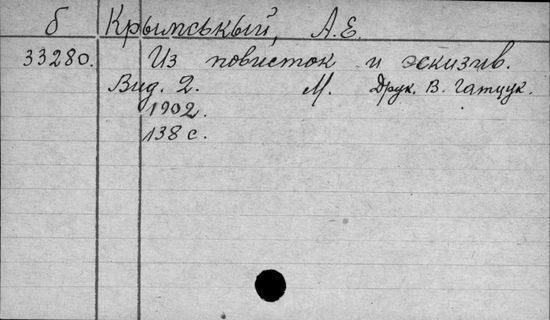 б Крымськый, А.Е.
33280. Из повисток и эскизив.
Выд. 2. М. Друк. В. Гатцук.
1902.
138 с.